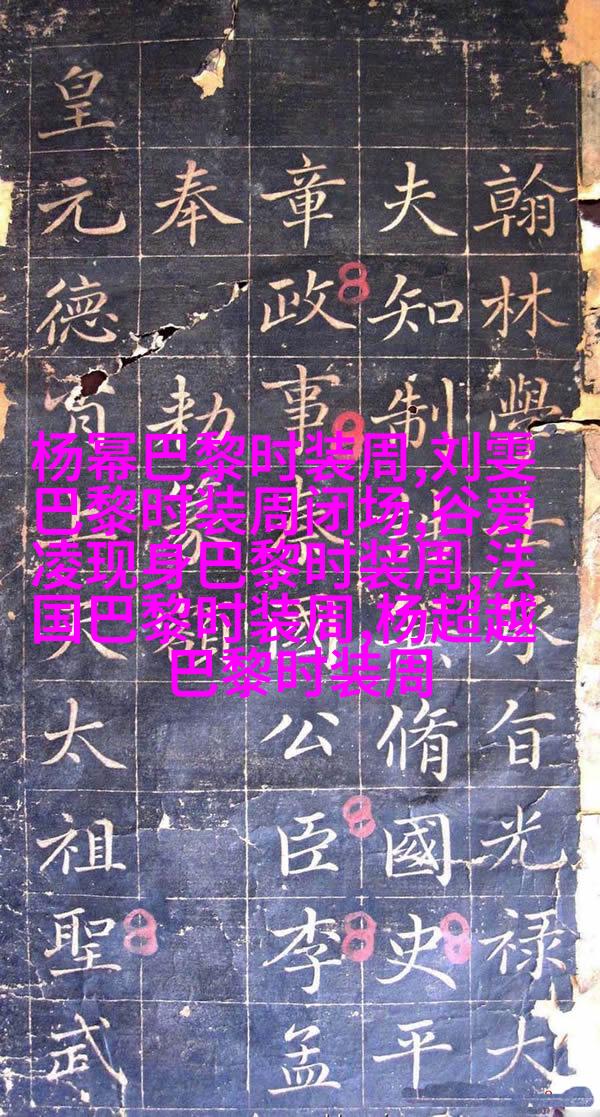 翰林學承旨光禄大
夫知制脩國史平
章政事國公臣李孟
奉勅篆
皇元德太祖聖武
杨幂巴黎时装周,刘雯
巴黎时装周闭场,谷爱
凌现身巴黎时装周,法
国巴黎时装周,杨超越
巴黎时装周